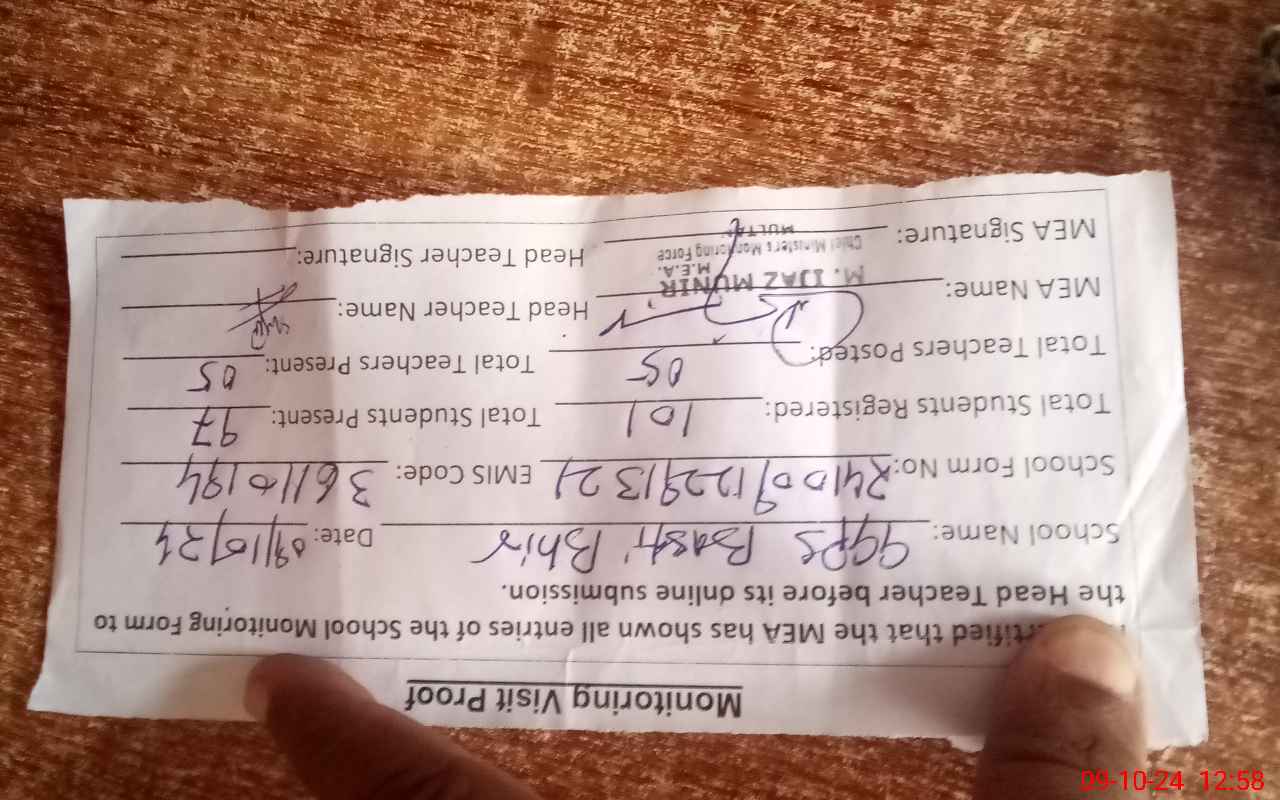 Monitoring Visit Proof
rtified that the MEA has shown all entries of the School Monitoring Form to
the Head Teacher before its online submission.
School Name: GGPS Basti Bhir Date: 09/10/24
School Form No: 24100912291321 EMIS Code: 36110194
Total Students Registered: 101 Total Students Present: 97
Total Teachers Posted: 05 Total Teachers Present: 05
MEA Name: Head Teacher Name:
M. IJAZ MUNIR
M.E.A.
Chief Ministers Monitoring Force
MEA Signature: Head Teacher Signature:
09-10-24 12:58